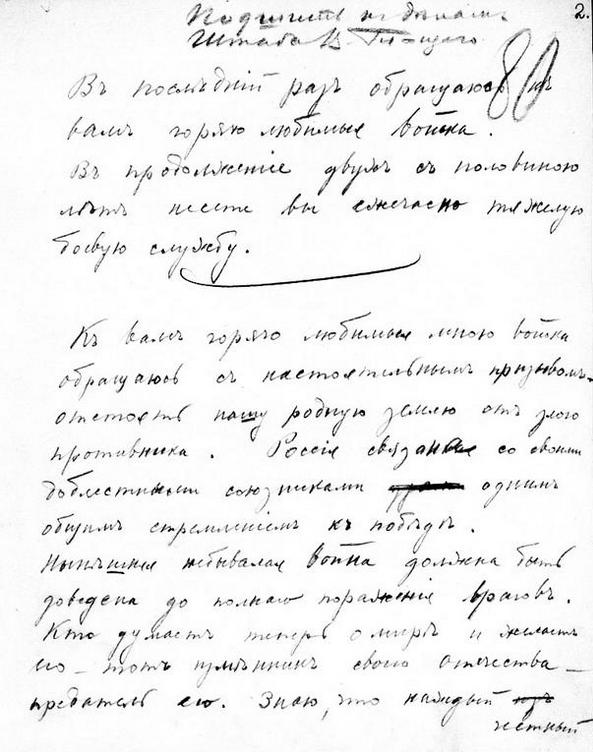 Подшить къ дѣламъ 2.
Штаба В. Главнаго
80
Въ послѣдній разъ обращаюсь къ
вамъ горячо любимыя войска.
Въ продолженіе двухъ съ половиною
лѣтъ несете вы ежечасно тяжелую
боевую службу.
Къ вамъ горячо любимыя мною войска
обращаюсь съ настоятельнымъ призывомъ -
отстоять нашу родную землю отъ злого
противника. Россія связанная со своими
доблестными союзниками однимъ
общимъ стремленіемъ къ побѣдѣ.
Нынѣшняя небывалая война должна быть
доведена до полнаго пораженія враговъ.
Кто думаетъ теперь о мирѣ и желаетъ
его - тотъ измѣнникъ своего отечества -
предатель его. Знаю, что каждый
честный